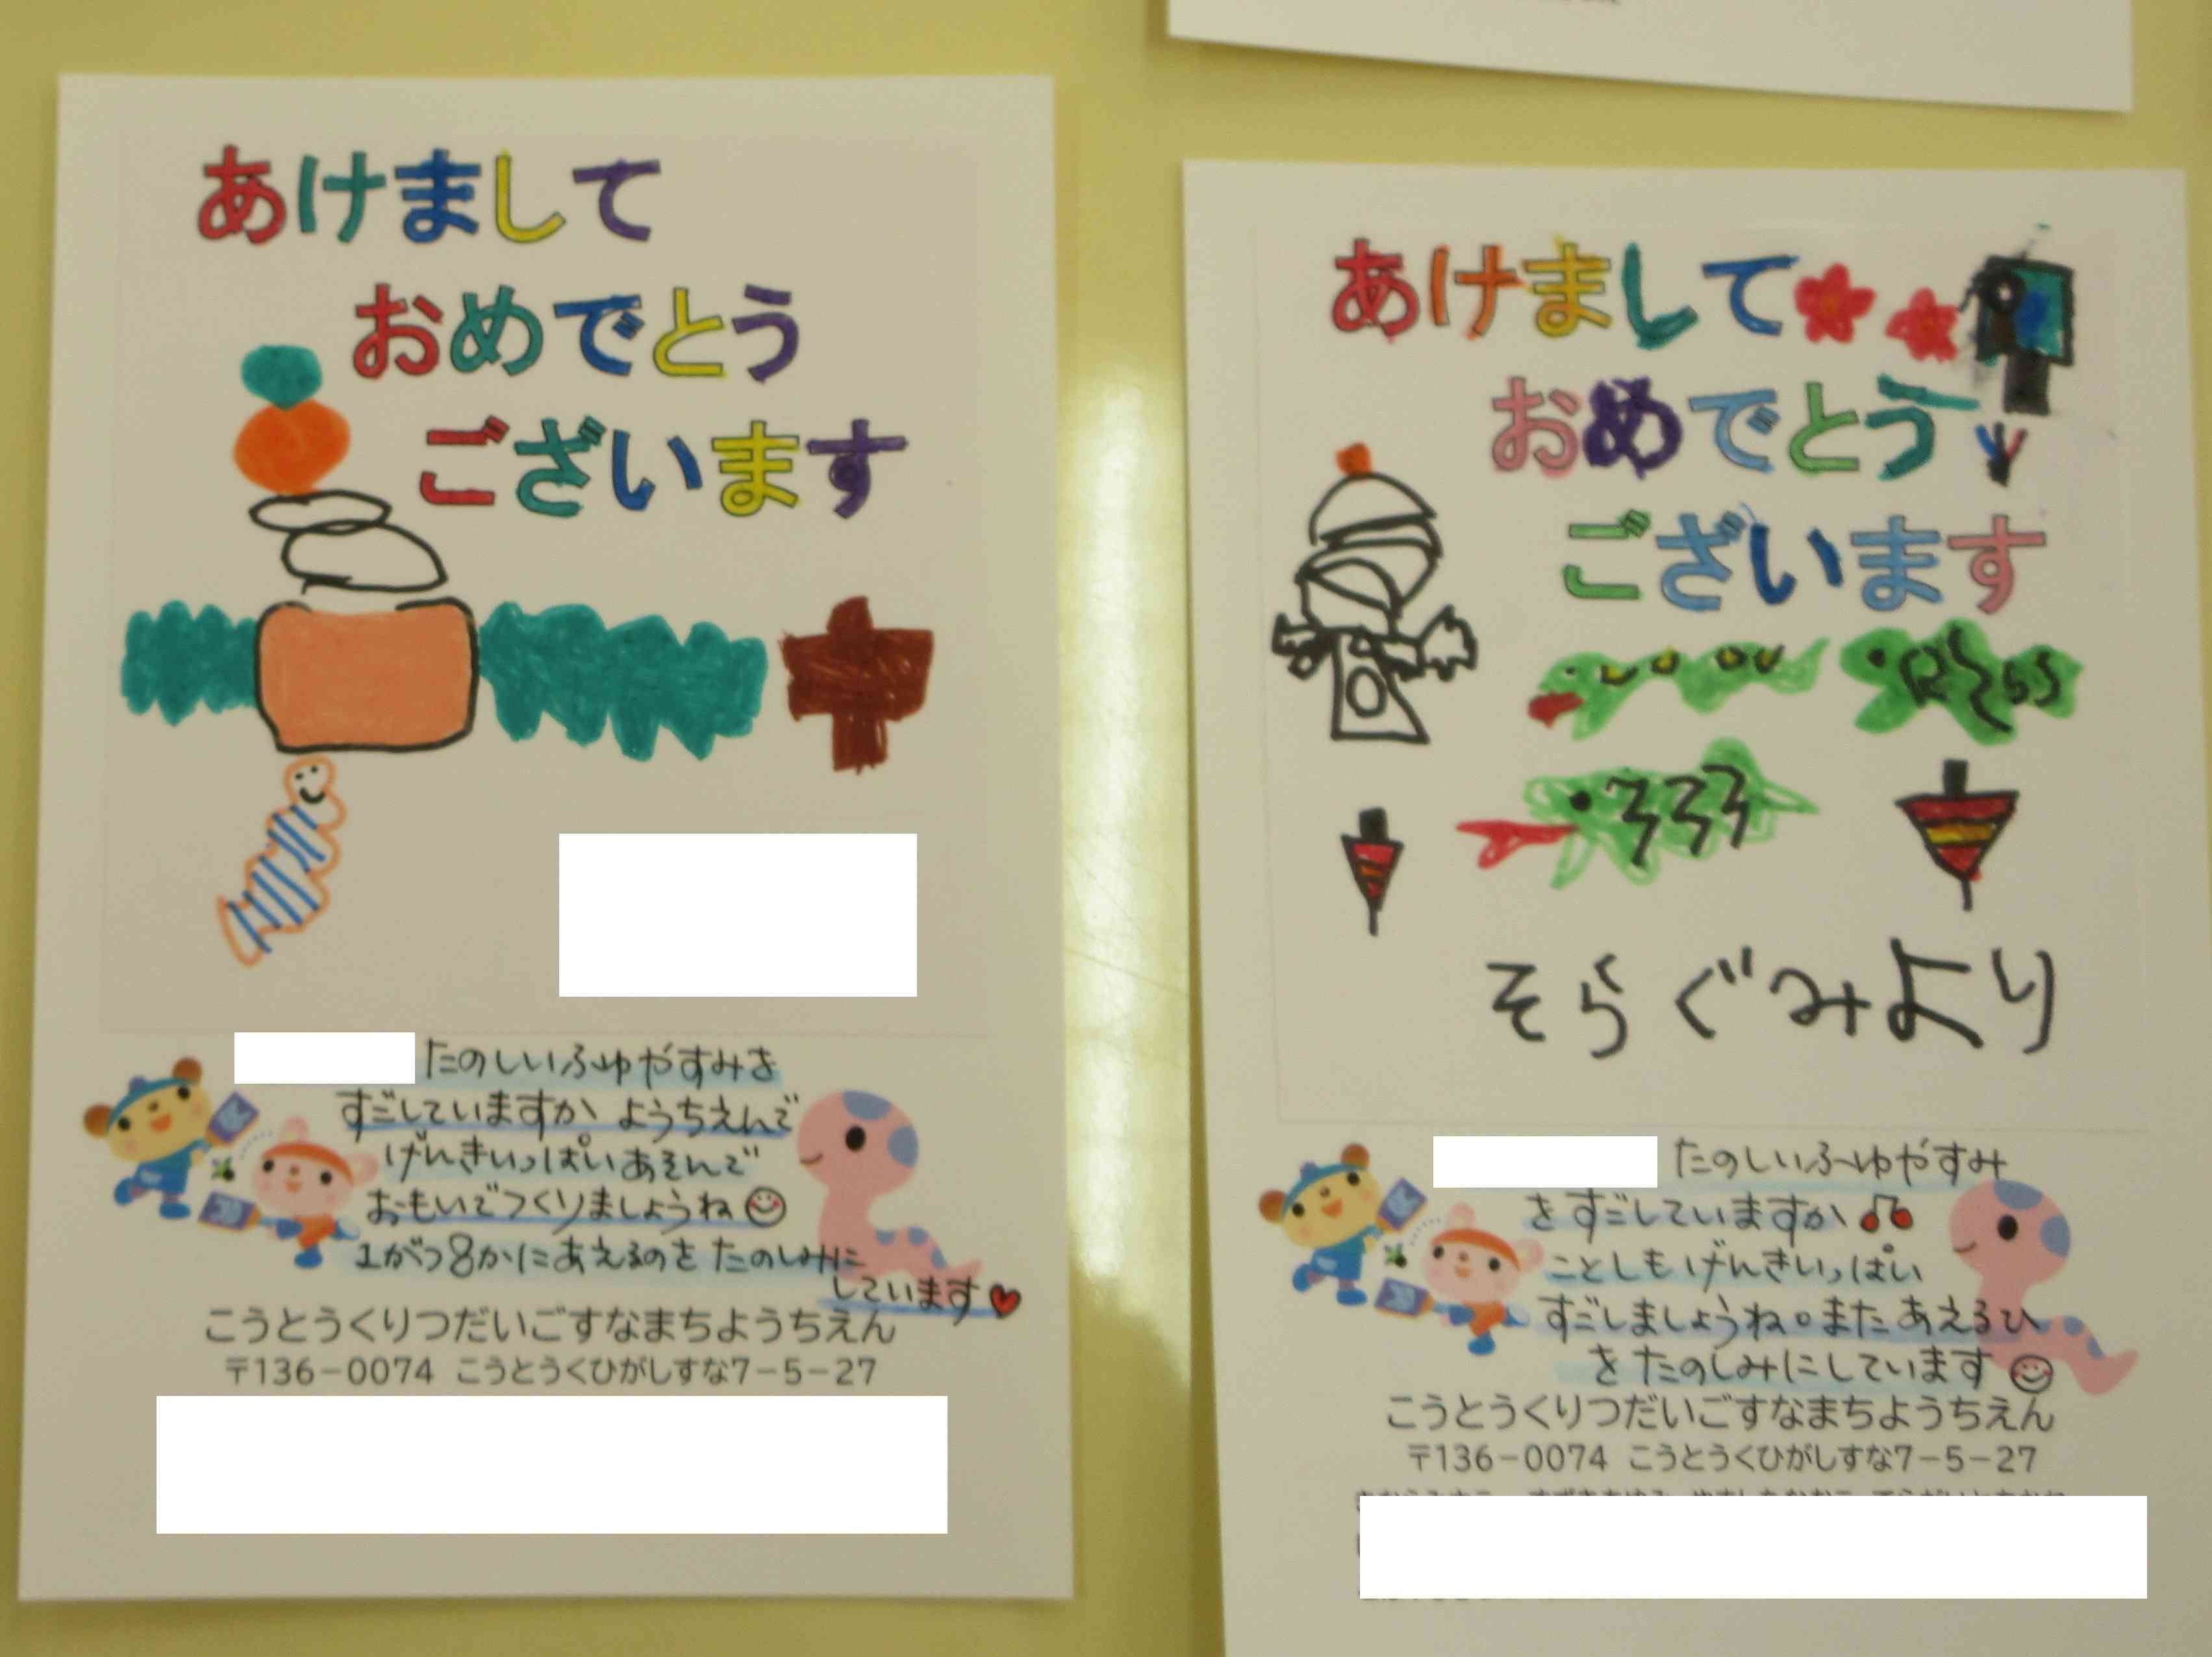 あけまして
おめでとう
ございます
たのしいふゆやすみを
すごしていますか ようちえんで
げんきいっぱいあそんで
おもいでつくりましょうね
1がつ8かにあえるのを たのしみに
しています
こうとうくりつだいごすなまちようちえん
〒136-0074 こうとうくひがしすな7-5-27
あけまして
おめでとう
ございます
そらぐみより
たのしいふゆやすみ
を すごしていますか
ことしも げんきいっぱい
すごしましょうね。また あえるひ
を たのしみにしています
こうとうくりつだいごすなまちようちえん
〒136-0074 こうとうくひがしすな7-5-27